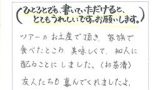 ひとことでも、書いていただけると、
とてもうれしいです。お願いします。
ツアーのお土産で頂き、家族で
食べたところ 美味しくて、知人に
配ることに しました。（お茶漬）
友人たちも 喜んでくれましたよ。